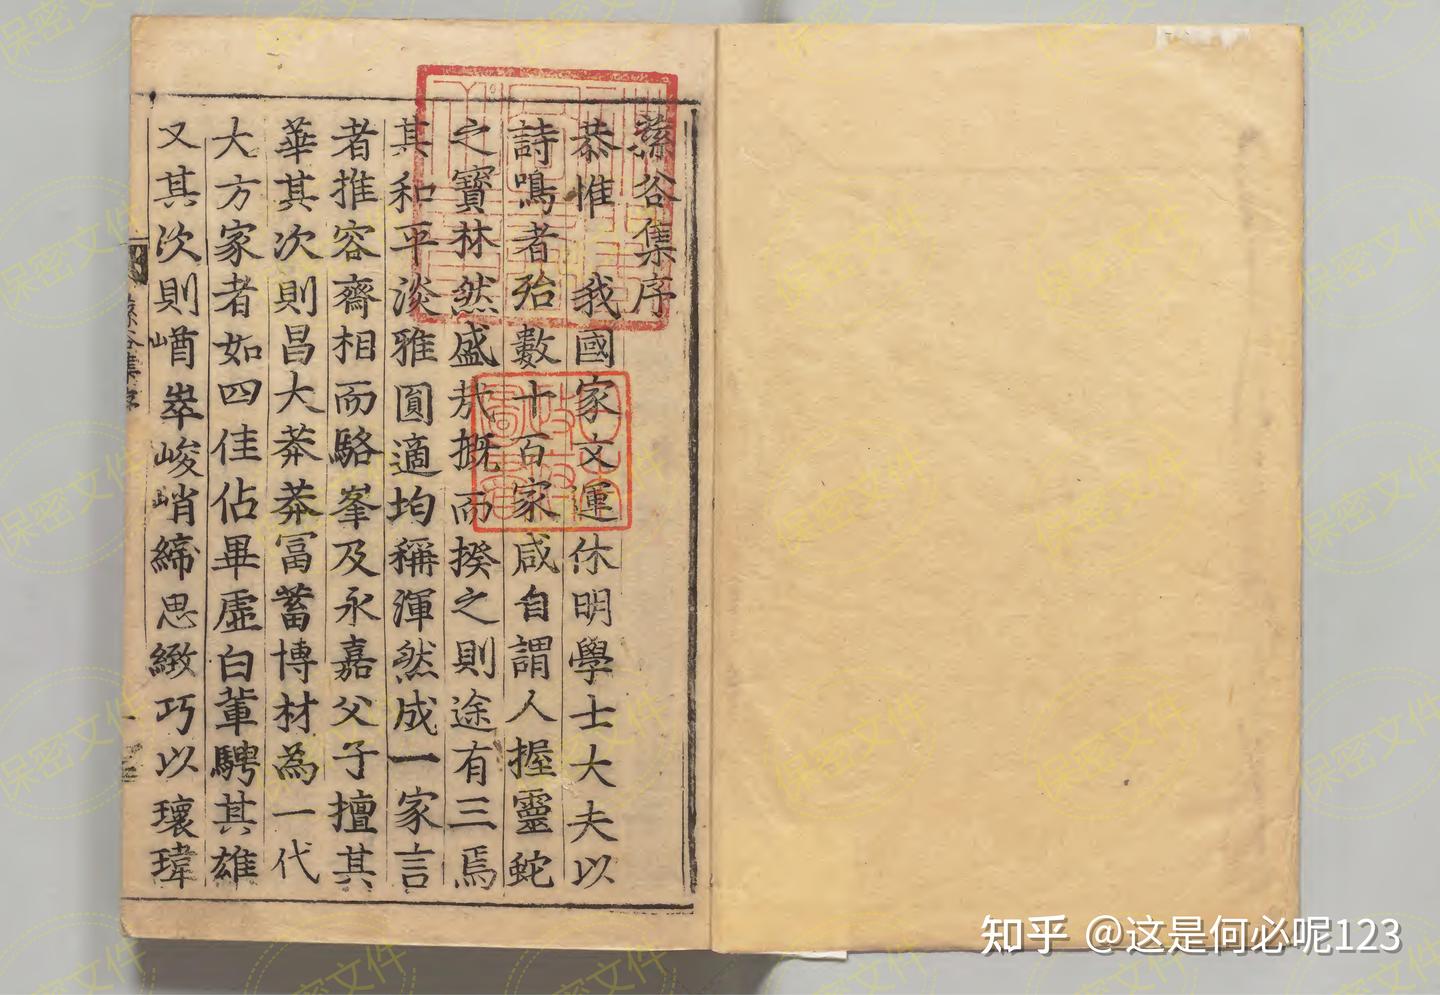 蓀谷集序
恭惟 我國家文運休明學士大夫以
詩鳴者殆數十百家咸自謂人握靈蛇
之寶林然盛㢤概而揆之則途有三焉
其和平淡雅圓適均稱渾然成一家言
者推容齋相而駱峯及永嘉父子擅其
華其次則昌大莽莽冨蓄博材為一代
大方家者如四佳佔畢虛白輩騁其雄
又其次則崷崒峻峭締思緻巧以瓌瑋
蓀谷集序
一
知乎 @这是何必呢123
保密文件